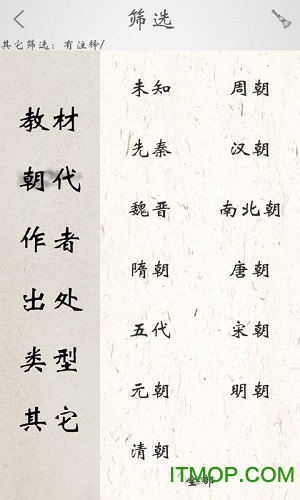 筛选
其它筛选：有注释/
教材
朝代
作者
出处
类型
其它
未知 周朝
先秦 汉朝
魏晋 南北朝
隋朝 唐朝
五代 宋朝
元朝 明朝
清朝
全部
ITMOP.com